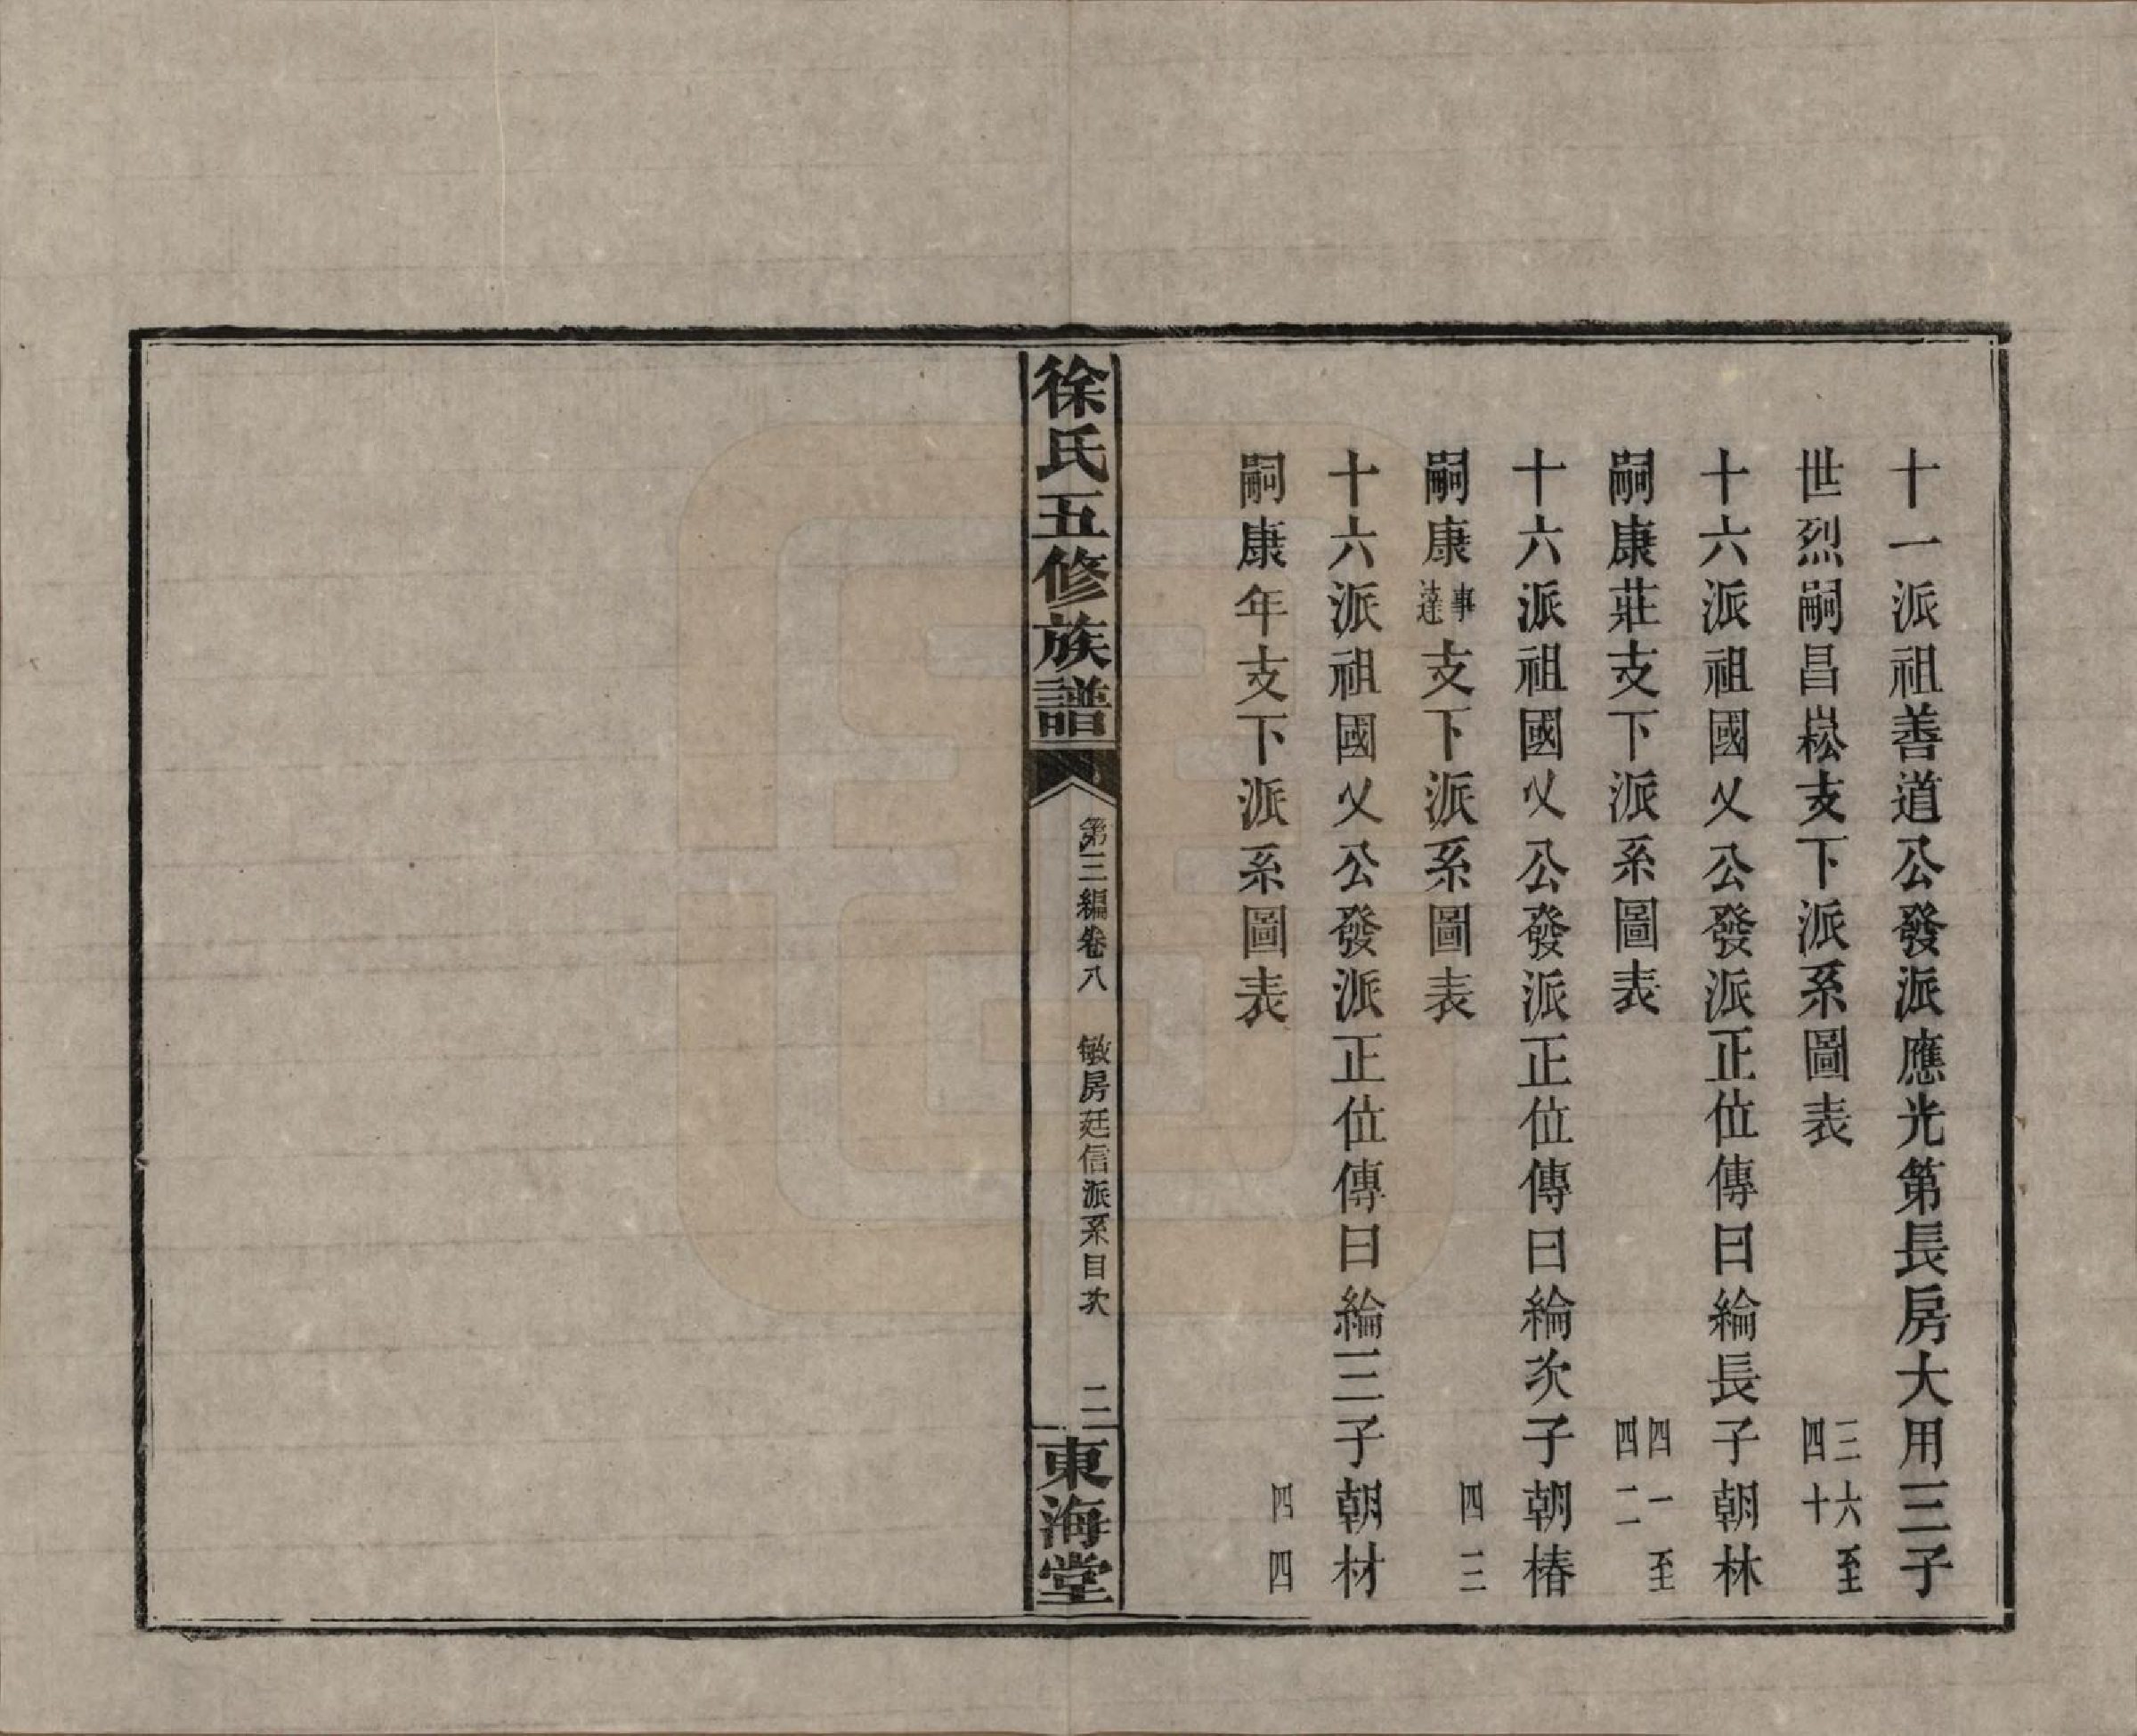 十一派祖善道公發派應光第長房大用三子
世烈嗣昌崧支下派系圖表 三六至四十
十六派祖國乂公發派正位傳曰綸長子朝林
嗣康莊支下派系圖表 四一至四二
十六派祖國乂公發派正位傳曰綸次子朝椿
嗣康事達支下派系圖表 四三
十六派祖國乂公發派正位傳曰綸三子朝材
嗣康年支下派系圖表 四四
徐氏五修族譜
第三編卷八 敏房廷信派系目次 二
東海堂